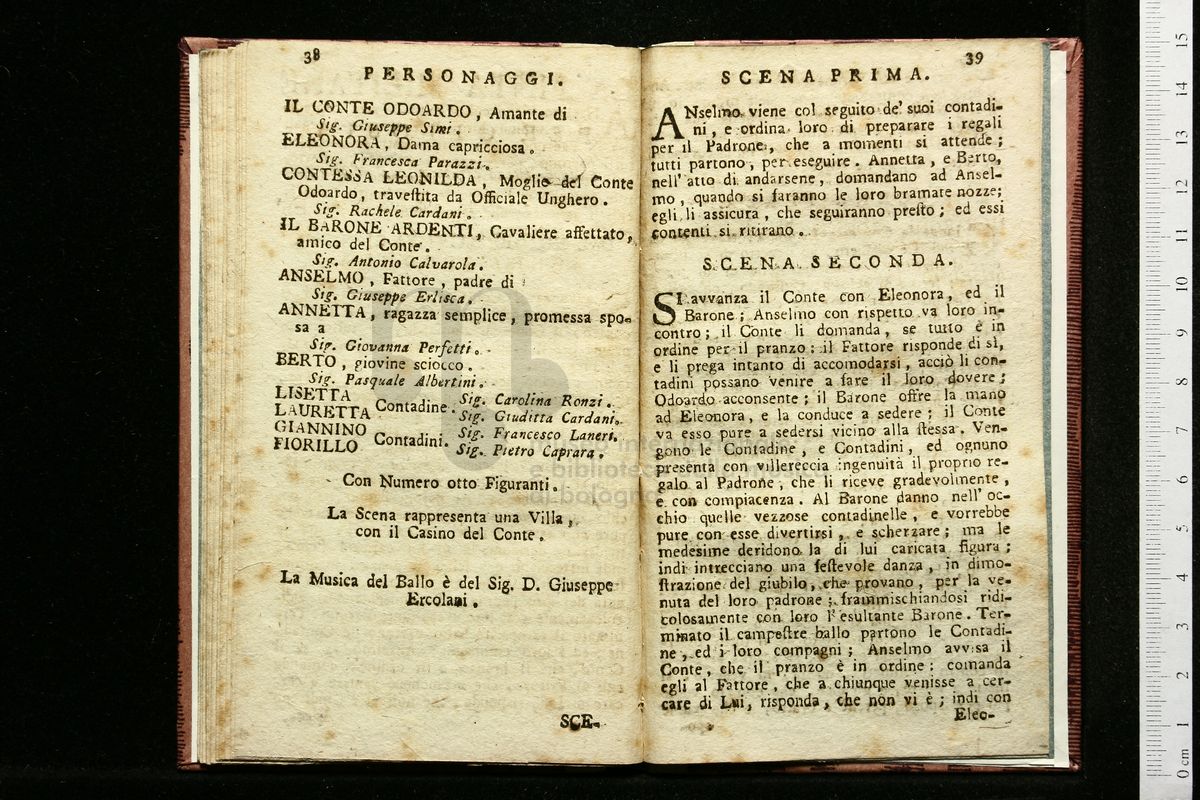 38
PERSONAGGI.
IL CONTE ODOARDO, Amante di
Sig. Giuseppe Simi.
ELEONORA, Dama capricciosa.
Sig. Francesca Parazzi.
CONTESSA LEONILDA, Moglie del Conte
Odoardo, traveſtita da Officiale Unghero.
Sig. Rachele Cardani.
IL BARONE ARDENTI, Cavaliere affettato,
amico del Conte.
Sig. Antonio Calvarola.
ANSELMO, Fattore, padre di
Sig. Giuseppe Erlisca.
ANNETTA, ragazza semplice, promessa spo-
sa a
Sig. Giovanna Perfetti.
BERTO, giovine sciocco.
Sig. Pasquale Albertini.
LISETTA
LAURETTA Contadine. Sig. Carolina Ronzi.
Sig. Giuditta Cardani.
GIANNINO
FIORILLO Contadini. Sig. Francesco Laneri.
Sig. Pietro Caprara.
Con Numero otto Figuranti.
La Scena rappresenta una Villa,
con il Casino del Conte.
La Musica del Ballo è del Sig. D. Giuseppe
Ercolani.
SCE-
39
SCENA PRIMA.
ANselmo viene col seguito de' suoi contadi-
ni, e ordina loro di preparare i regali
per il Padrone, che a momenti si attende;
tutti partono, per eseguire. Annetta, e Berto,
nell' atto di andarsene, domandano ad Ansel-
mo, quando si faranno le loro bramate nozze;
egli li assicura, che seguiranno preſto; ed essi
contenti si ritirano.
SCENA SECONDA.
SI avvanza il Conte con Eleonora, ed il
Barone; Anselmo con rispetto va loro in-
contro; il Conte li domanda, se tutto è in
ordine per il pranzo: il Fattore risponde di sì,
e li prega intanto di accomodarsi, acciò li con-
tadini possano venire a fare il loro dovere;
Odoardo acconsente; il Barone offre la mano
ad Eleonora, e la conduce a sedere; il Conte
va esso pure a sedersi vicino alla ſtessa. Ven-
gono le Contadine, e Contadini, ed ognuno
presenta con villereccia ingenuità il proprio re-
galo al Padrone, che li riceve gradevolmente,
e con compiacenza. Al Barone danno nell' oc-
chio quelle vezzose contadinelle, e vorrebbe
pure con esse divertirsi, e scherzare; ma le
medesime deridono la di lui caricata figura;
indi intrecciano una feſtevole danza, in dimo-
ſtrazione del giubilo, che provano, per la ve-
nuta del loro padrone; frammischiandosi ridi-
colosamente con loro l' esultante Barone. Ter-
minato il campeſtre ballo partono le Contadi-
ne, ed i loro compagni; Anselmo avvisa il
Conte, che il pranzo è in ordine: comanda
egli al Fattore, che a chiunque venisse a cer-
care di Lui, risponda, che non vi è; indi con
Eleo-
e biblioteca
di bologna
0 cm 1 2 3 4 5 6 7 8 9 10 11 12 13 14 15